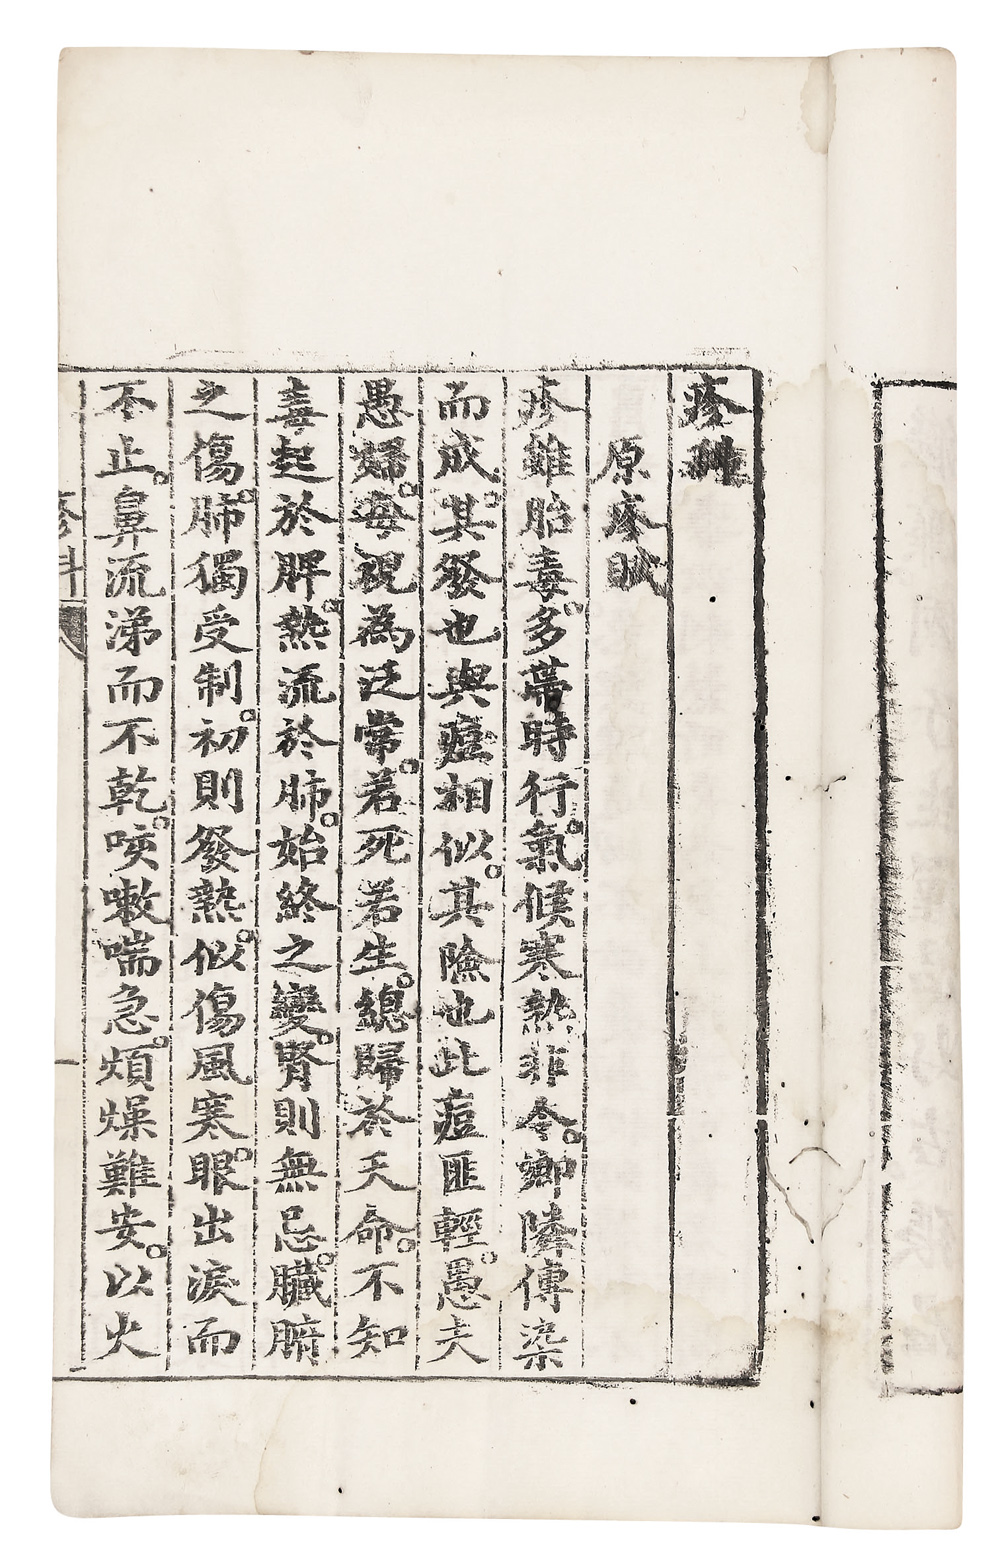 疹科
原疹賦
疹雖胎毒。多帶時行。氣候寒熱非令。鄉隣傳染
而成。其發也與痘相似。其險也此痘匪輕。愚夫
愚婦。每視為泛常。若死若生。總歸於天命。不知
毒起於脾。熱流於肺。始終之變。腎則無忌。臟腑
之傷。肺獨受制。初則發熱。似傷風寒。眼出淚而
不止。鼻流涕而不乾。咳嗽喘急。煩燥難安。以火
疹科
一